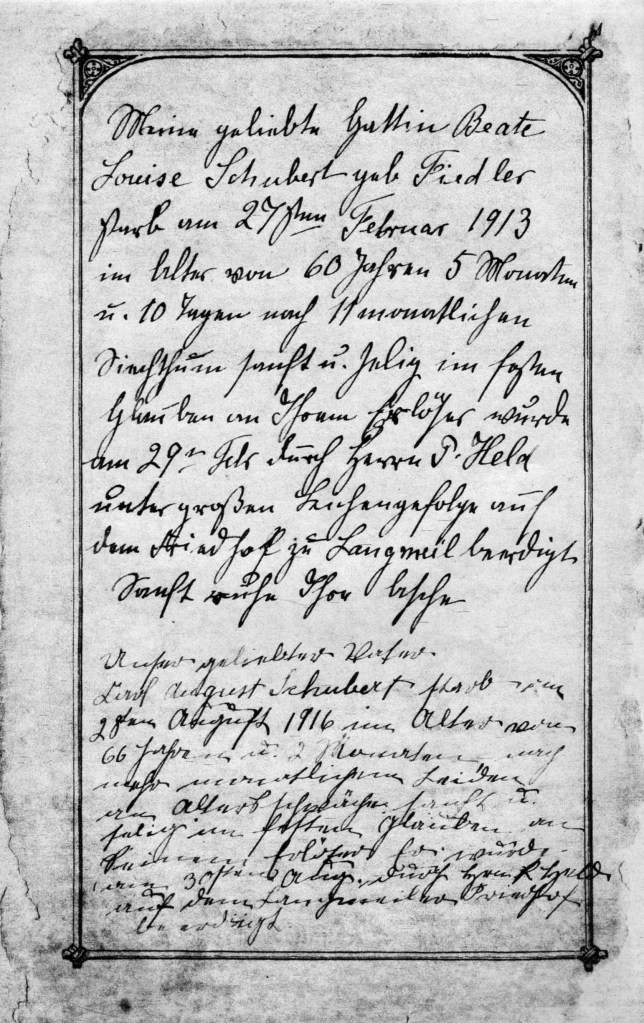 Meine geliebte Gattin Beate
Louise Schubert geb Fiedler
starb am 27sten Februar 1913
im Alter von 60 Jahren 5 Monaten
u. 10 Tagen nach 11 monatlichen
Siechthum sanft u. selig im festen
Glauben an Ihrem Erlöser wurde
am 29ten Feb durch Herrn P. Held
unter großen Leichengefolge auf
dem Friedhof zu Langweil beerdigt
Sanft ruhe Ihre Asche
Unser geliebter Vater
Carl August Schubert starb am
August 1916 im Alter von
66 Jahren u. 2 Monaten nach
mehr monatlichem Leiden
an Altersschwäche sanft u.
selig im festen Glauben an
Seinem Erlöser Er wurde
am 30sten Aug. durch Hrn P Held
auf dem Langweiler Friedhof
beerdigt